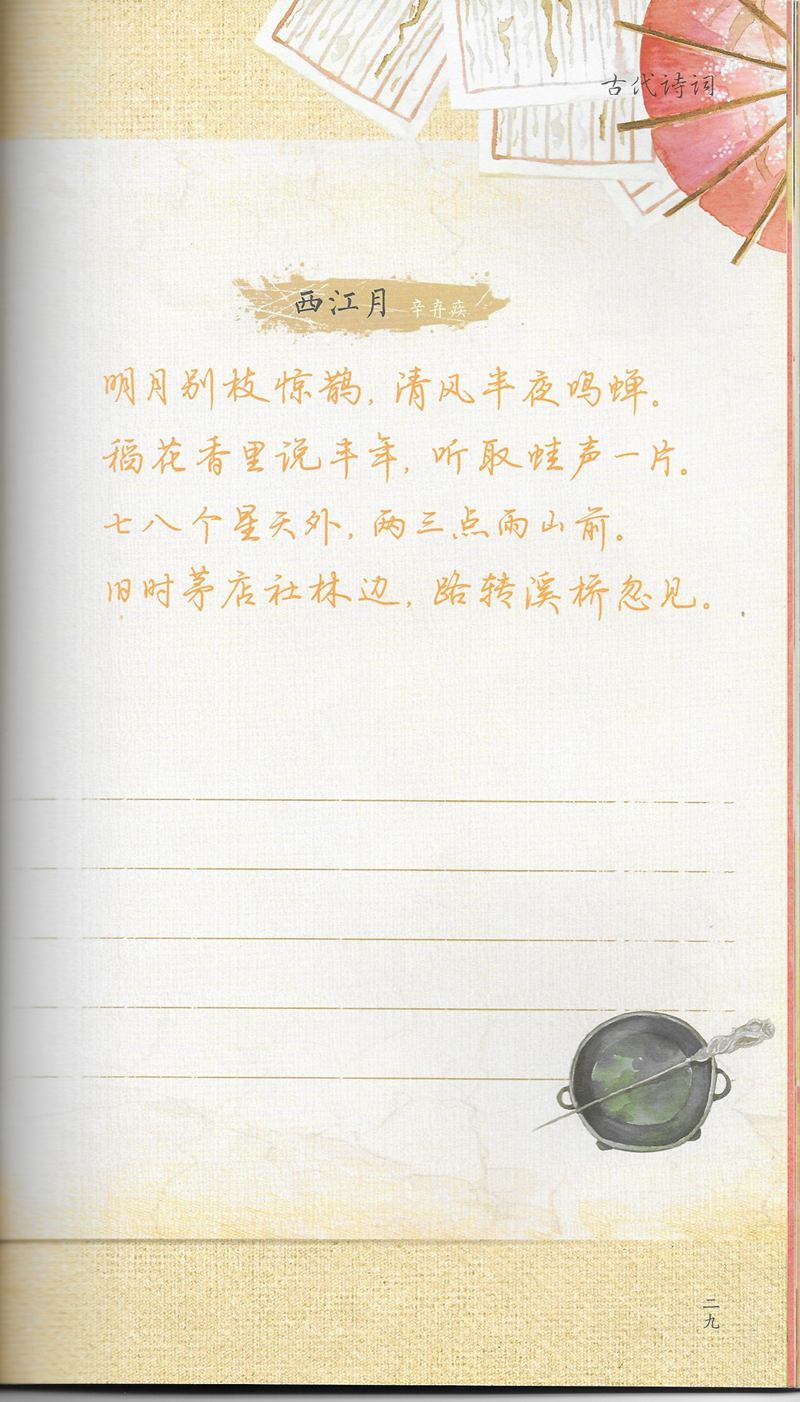 古代诗词
西江月 辛弃疾
明月别枝惊鹊，清风半夜鸣蝉。
稻花香里说丰年，听取蛙声一片。
七八个星天外，两三点雨山前。
旧时茅店社林边，路转溪桥忽见。
二九